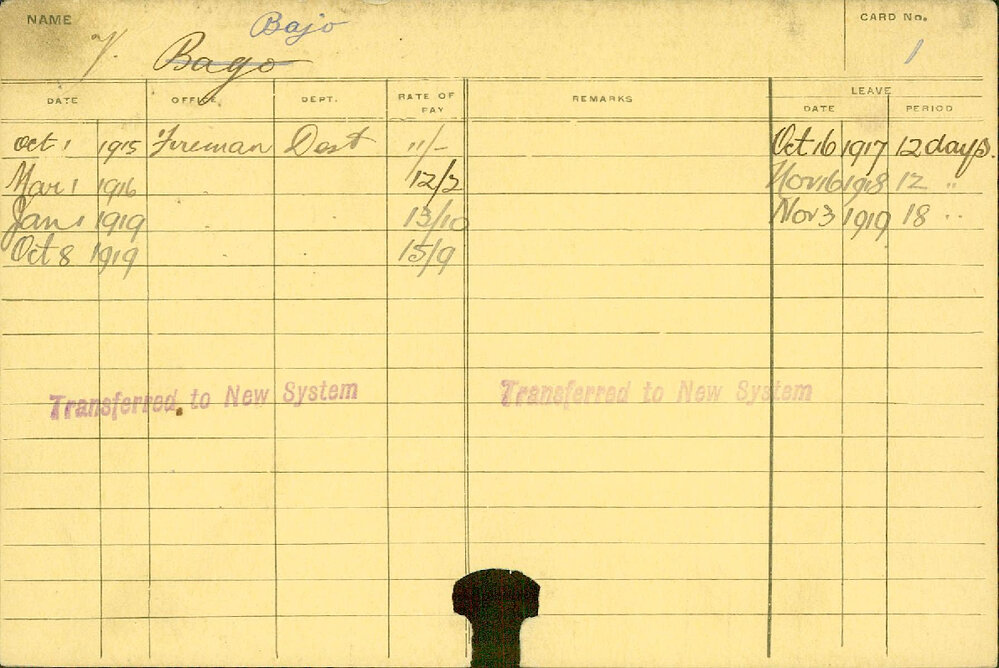 NAME Bajo CARD No.
Y. Bago 1
DATE OFFICE. DEPT. RATE OF PAY REMARKS LEAVE
DATE PERIOD
Oct 1 1915 Fireman Dest 11/- Oct 16 1917 12 days.
Mar 1 1916 12/2 Nov 16 1918 12 "
Jan 1 1919 13/10 Nov 3 1919 18 "
Oct 8 1919 15/9
Transferred to New System Transferred to New System